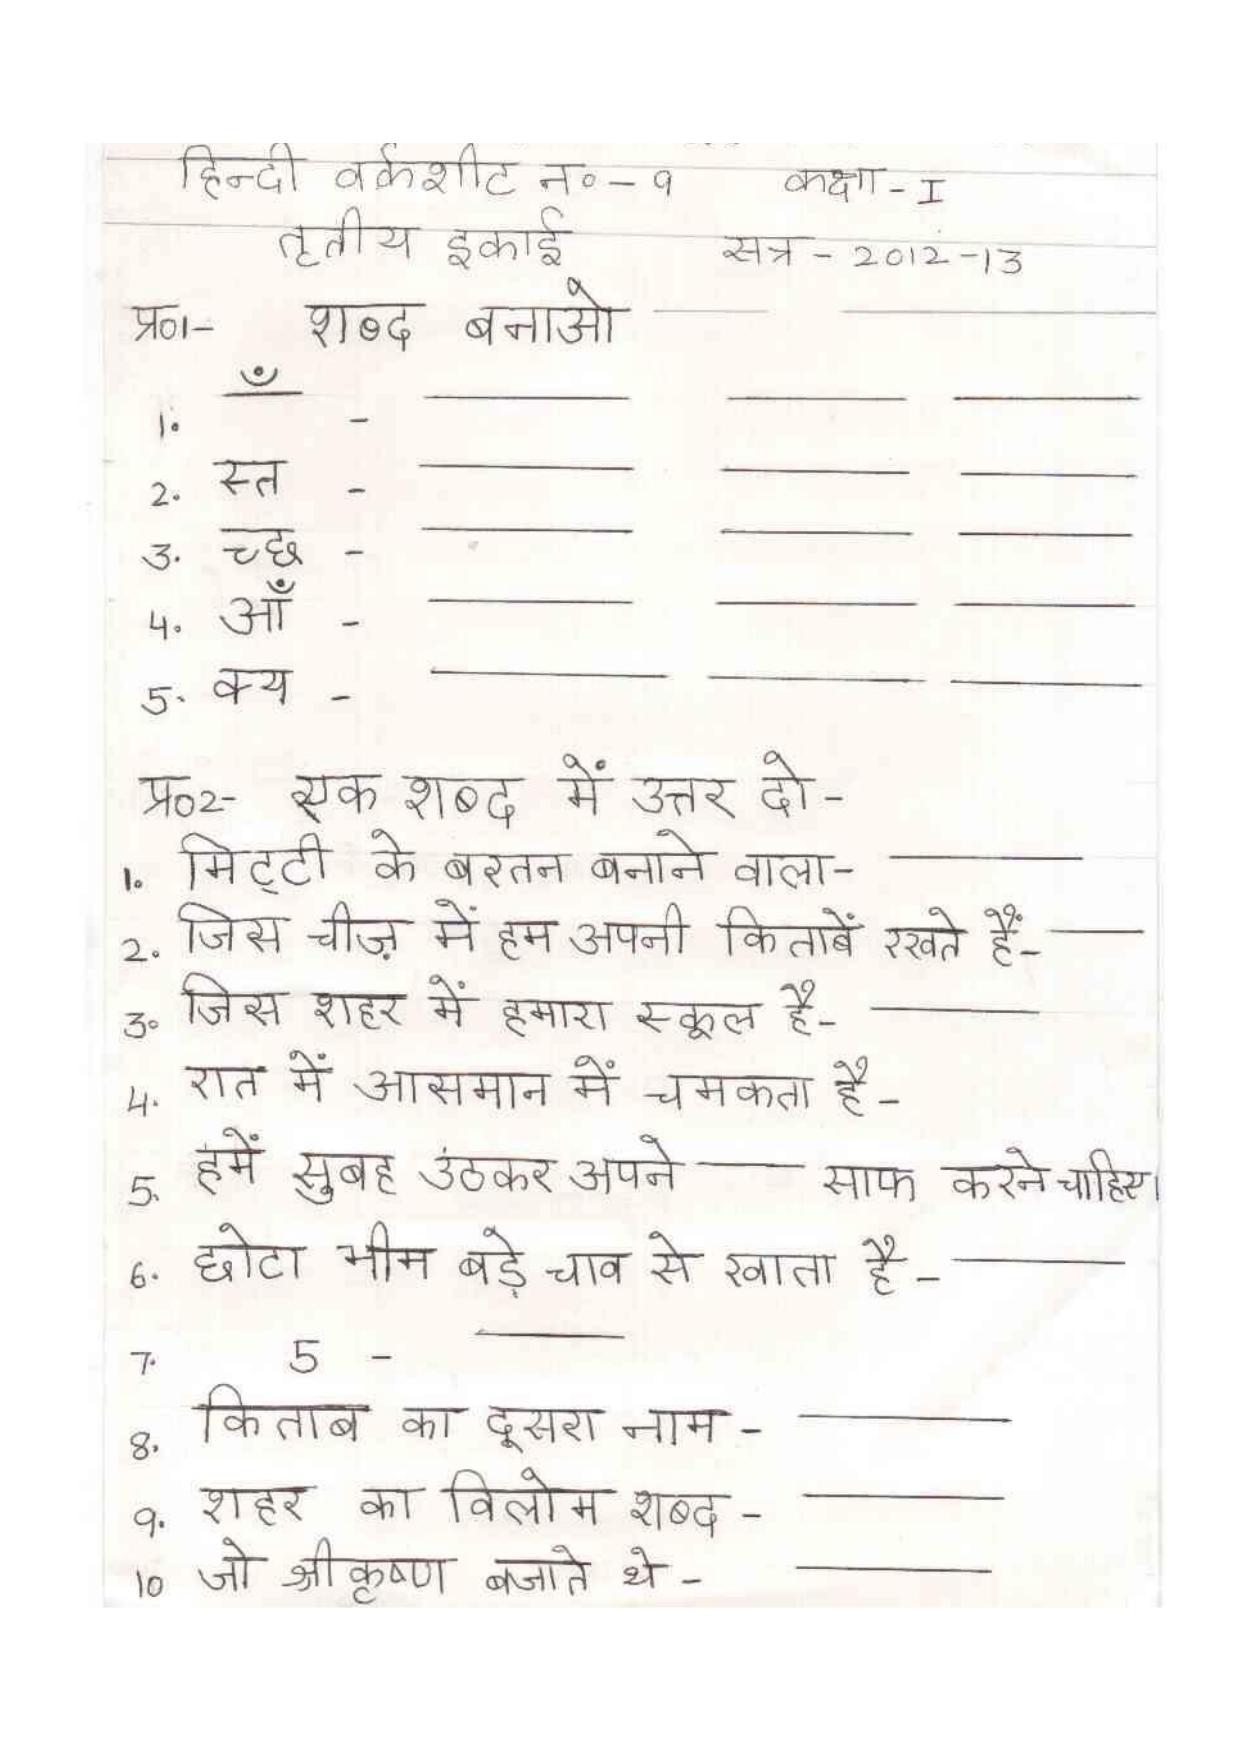 हिन्दी वर्कशीट न०-9 कक्षा-I
तृतीय इकाई सत्र - 2012-13
प्र०1- शब्द बनाओ
1. ँ -
2. स्त -
3. च्छ -
4. आँ -
5. क्य -
प्र०2- एक शब्द में उत्तर दो -
1. मिट्टी के बरतन बनाने वाला-
2. जिस चीज़ में हम अपनी किताबें रखते हैं-
3. जिस शहर में हमारा स्कूल है-
4. रात में आसमान में चमकता है -
5. हमें सुबह उठकर अपने ___ साफ करने चाहिए।
6. छोटा भीम बड़े चाव से खाता है -
7. 5 -
8. किताब का दूसरा नाम -
9. शहर का विलोम शब्द -
10 जो श्रीकृष्ण बजाते थे -